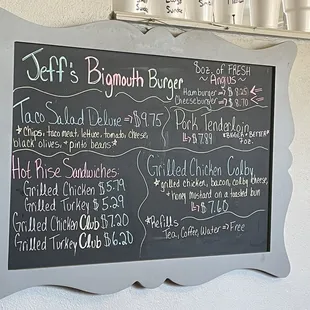 Jeff's Bigmouth Burger
8oz. of FRESH
~ Angus ~
Hamburger => $8.25
Cheeseburger => $8.70
Taco Salad Deluxe => $9.75
*Chips, taco meat, lettuce, tomato, cheese,
black olives, *pinto beans*
Pork Tenderloin
$7.89 *BIGGER & BETTER*
7oz.
Hot Rise Sandwiches:
Grilled Chicken $5.79
Grilled Turkey $5.29
Grilled Chicken Club $7.20
Grilled Turkey Club $6.20
Grilled Chicken Colby
*grilled chicken, bacon, colby cheese,
honey mustard on a toasted bun
$7.60
*Refills
Tea, Coffee, Water => Free